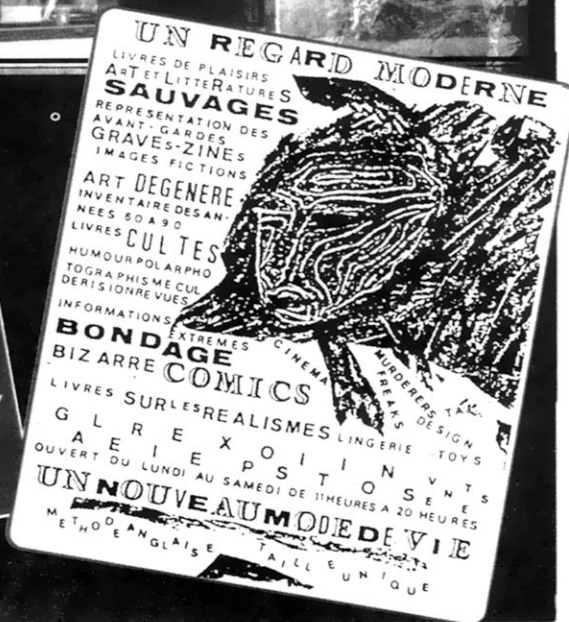 UN REGARD MODERNE
LIVRES DE PLAISIRS
ART ET LITTERATURES
SAUVAGES
REPRESENTATION DES
AVANT-GARDES
GRAVES-ZINES
IMAGES FICTIONS
ART DEGENERE
INVENTAIRE DES AN-
NEES 60 A 90
LIVRES CULTES
HUMOUR POLAR PHO
TOGRAPHISME CUL
DERISION REVUES
INFORMATIONS EXTREMES
CINEMA
MURDERERS
FREAKS
DESIGN
BONDAGE
BIZARRE COMICS
LIVRES SUR LES REALISMES LINGERIE TOYS
G L R E X O I I N V N T S
A E I E P S T O S E N E
OUVERT DU LUNDI AU SAMEDI DE 11HEURES A 20 HEURES
UN NOUVEAU MODE DE VIE
METHODE ANGLAISE TAILLE UNIQUE